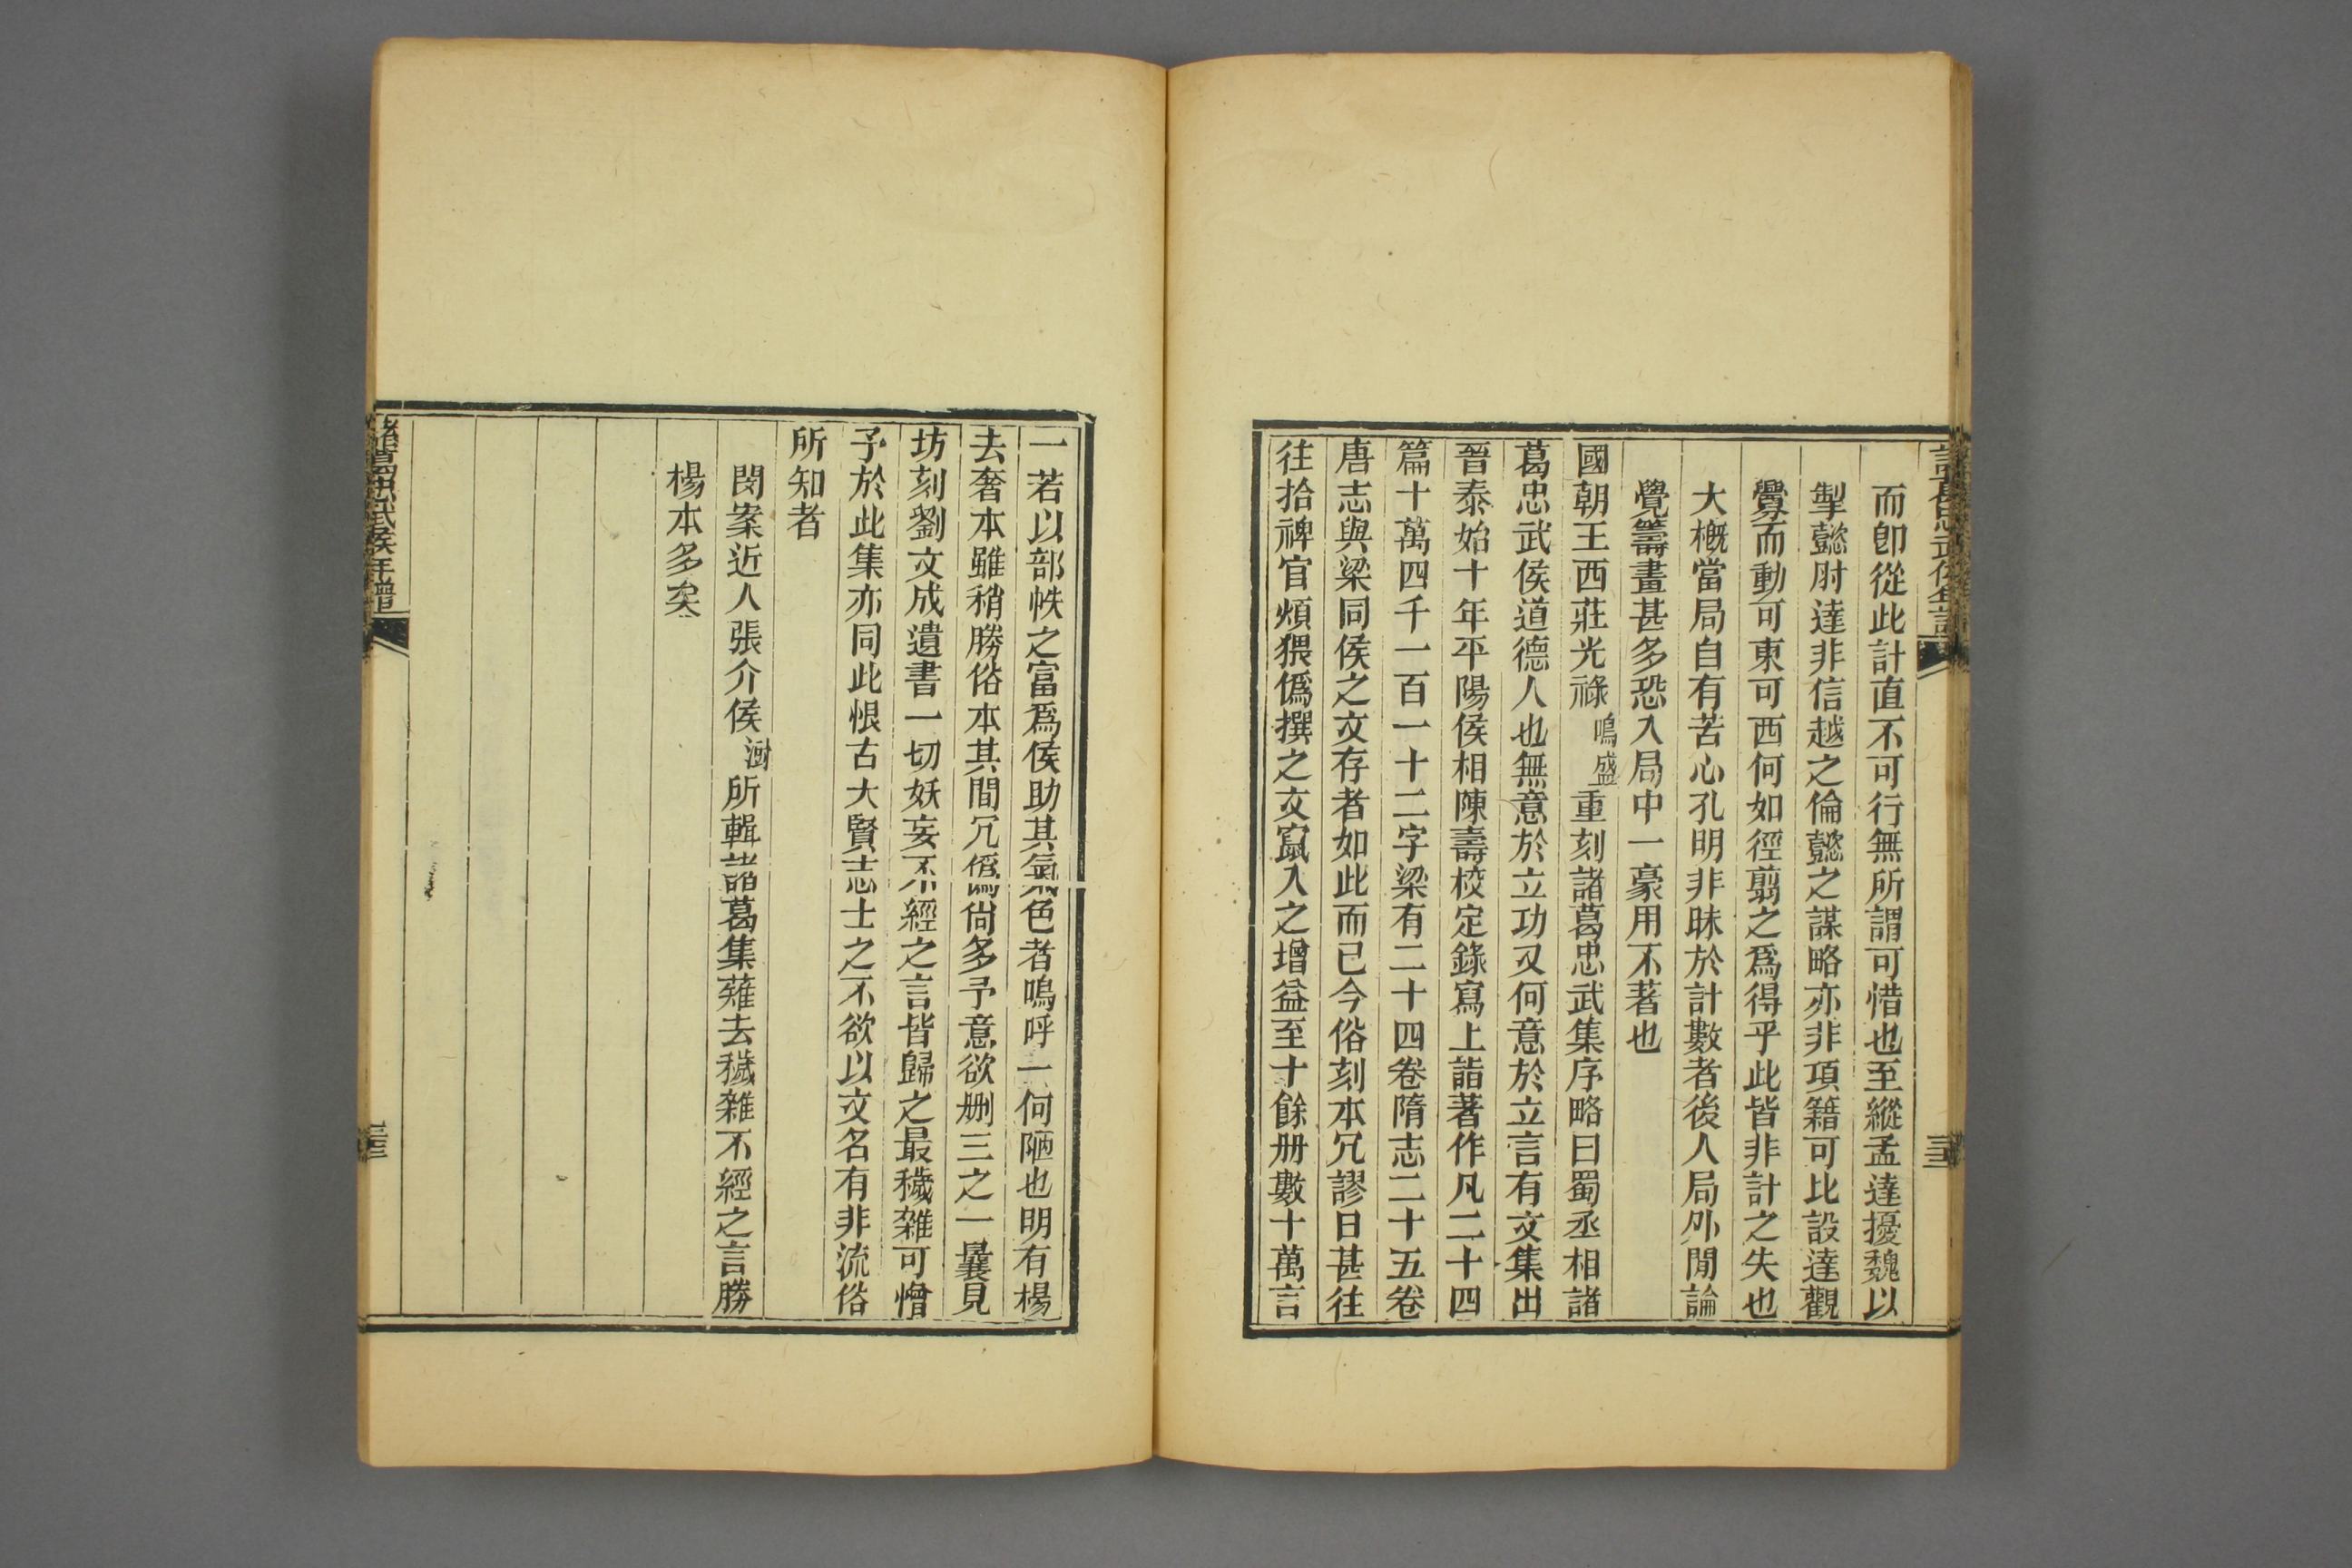 而卽從此計直不可行無所謂可惜也至縱孟達擾魏以
掣懿肘達非信越之倫懿之謀略亦非項籍可比設達觀
釁而動可東可西何如徑翦之爲得乎此皆非計之失也
大槪當局自有苦心孔明非昧於計數者後人局外閒論
覺籌畫甚多恐入局中一豪用不著也
國朝王西莊光祿鳴盛重刻諸葛忠武集序略曰蜀丞相諸
葛忠武侯道德人也無意於立功又何意於立言有文集出
晉泰始十年平陽侯相陳壽校定錄寫上詣著作凡二十四
篇十萬四千一百一十二字梁有二十四卷隋志二十五卷
唐志與梁同侯之文存者如此而已今俗刻本冗謬日甚往
往拾稗官煩猥僞撰之文竄入之增益至十餘册數十萬言
一若以部帙之富爲侯助其氣色者嗚呼一何陋也明有楊
去奢本雖稍勝俗本其間冗僞尙多予意欲删三之一曩見
坊刻劉文成遺書一切妖妄不經之言皆歸之最穢雜可憎
予於此集亦同此恨古大賢志士之不欲以文名有非流俗
所知者
閔案近人張介侯澍所輯諸葛集薙去穢雜不經之言勝
楊本多矣
諸葛忠武侯年譜